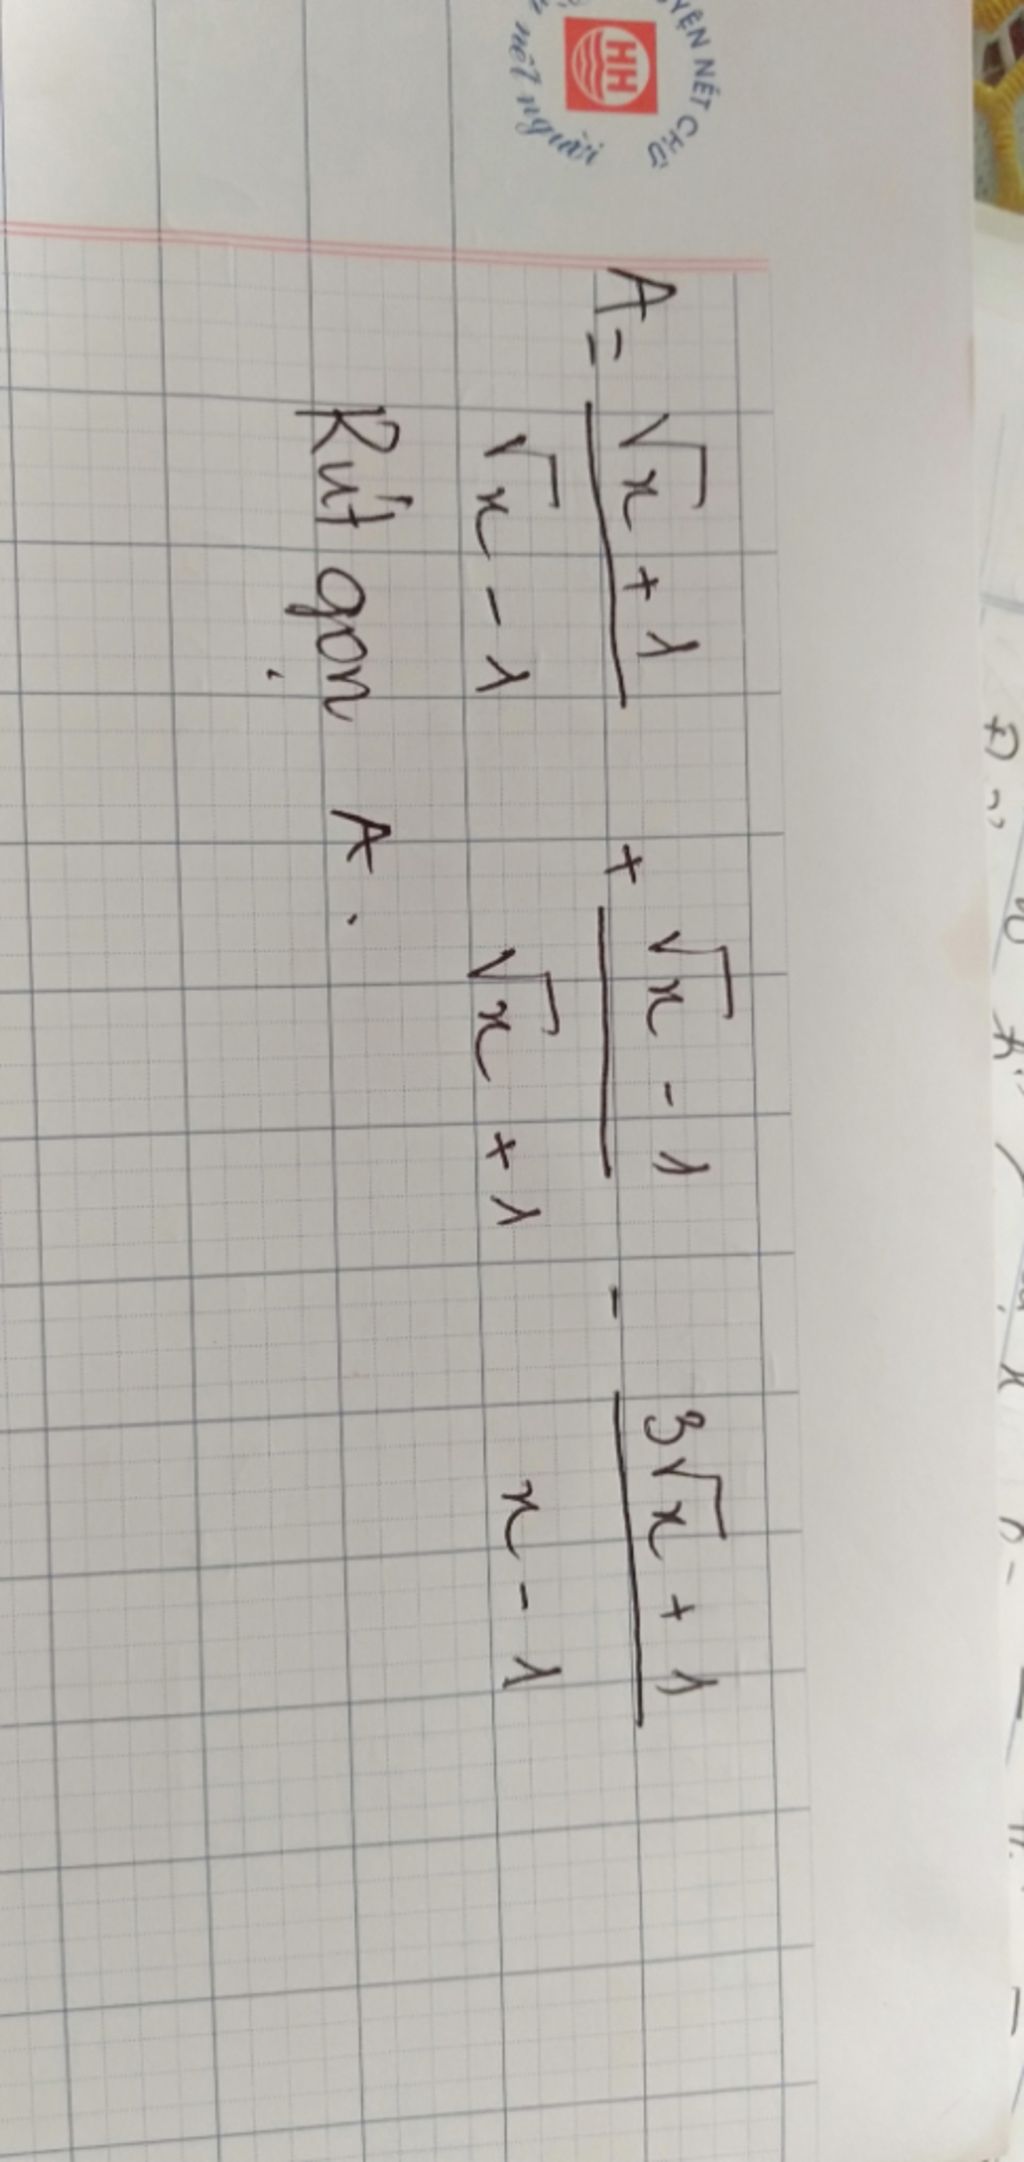 LUYỆN NÉT CHỮ
nết người
A = \frac{\sqrt{x} + 1}{\sqrt{x} - 1} + \frac{\sqrt{x} - 1}{\sqrt{x} + 1} - \frac{3\sqrt{x} + 1}{x - 1}
Rút gọn A.